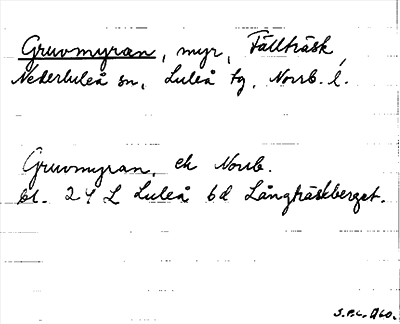 Gruvmyran, myr, Fällträsk,
Nederluleå sn, Luleå tg, Norrb. l.
Gruvmyran, ek Norrb.
bl. 24 L Luleå 6d Långträskberget.